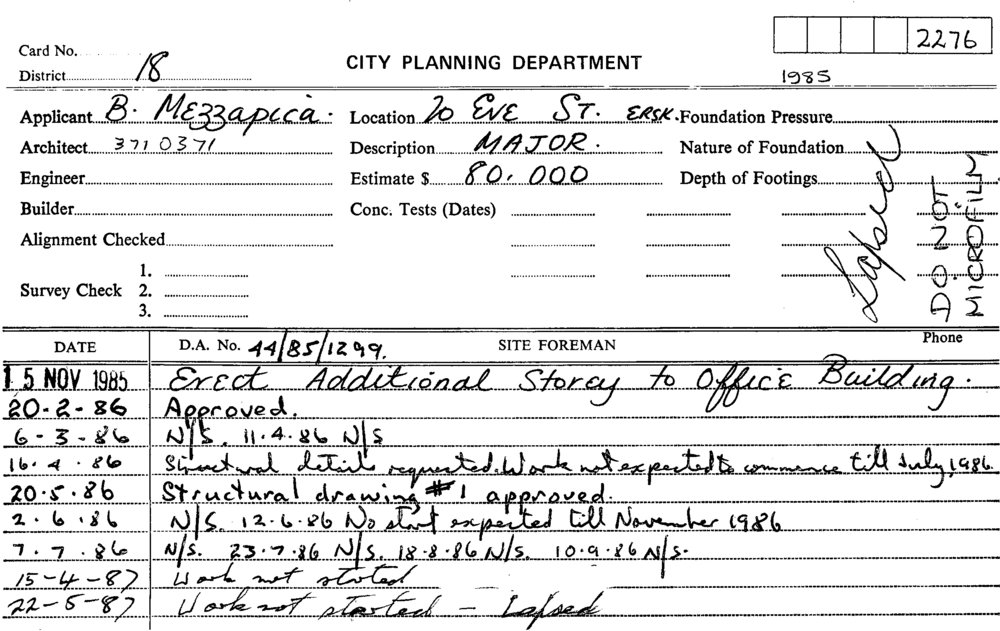 2276
Card No.
District 18
CITY PLANNING DEPARTMENT
1985
Applicant B. Mezzapica. Location 20 EVE ST. ERSK. Foundation Pressure
Architect 371 0371 Description MAJOR. Nature of Foundation
Engineer Estimate $ 80,000 Depth of Footings
Builder Conc. Tests (Dates)
Alignment Checked
Survey Check 1.
2.
3.
Lapsed
DO NOT
MICROFILM
DATE D.A. No. 44/85/1299. SITE FOREMAN Phone
15 NOV 1985 Erect Additional Storey to Office Building.
20-2-86 Approved.
6-3-86 N/S. 11.4.86 N/S
16.4.86 Structural details requested. Work not expected to commence till July, 1986.
20.5.86 Structural drawing # 1 approved.
2.6.86 N/S. 12.6.86 No start expected till November 1986
7.7.86 N/S. 23.7.86 N/S. 18.8.86 N/S. 10.9.86 N/S.
15-4-87 Work not started
22-5-87 Work not started - Lapsed